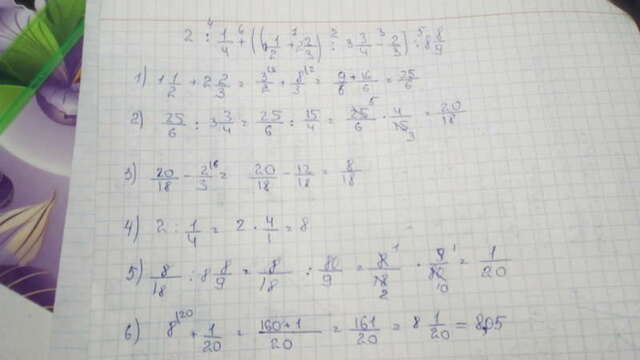 2 : 1/4 + ((1 1/2 + 2 2/3) : 3 3/4 - 2/3) : 8 8/9
1) 1 1/2 + 2 2/3 = 3/2 + 8/3 = 9/6 + 16/6 = 25/6
2) 25/6 : 3 3/4 = 25/6 : 15/4 = 25/6 · 4/15 = 20/18
3) 20/18 - 2/3 = 20/18 - 12/18 = 8/18
4) 2 : 1/4 = 2 · 4/1 = 8
5) 8/18 : 8 8/9 = 8/18 : 80/9 = 8/18 · 9/80 = 1/20
6) 8 + 1/20 = 160+1/20 = 161/20 = 8 1/20 = 8,05